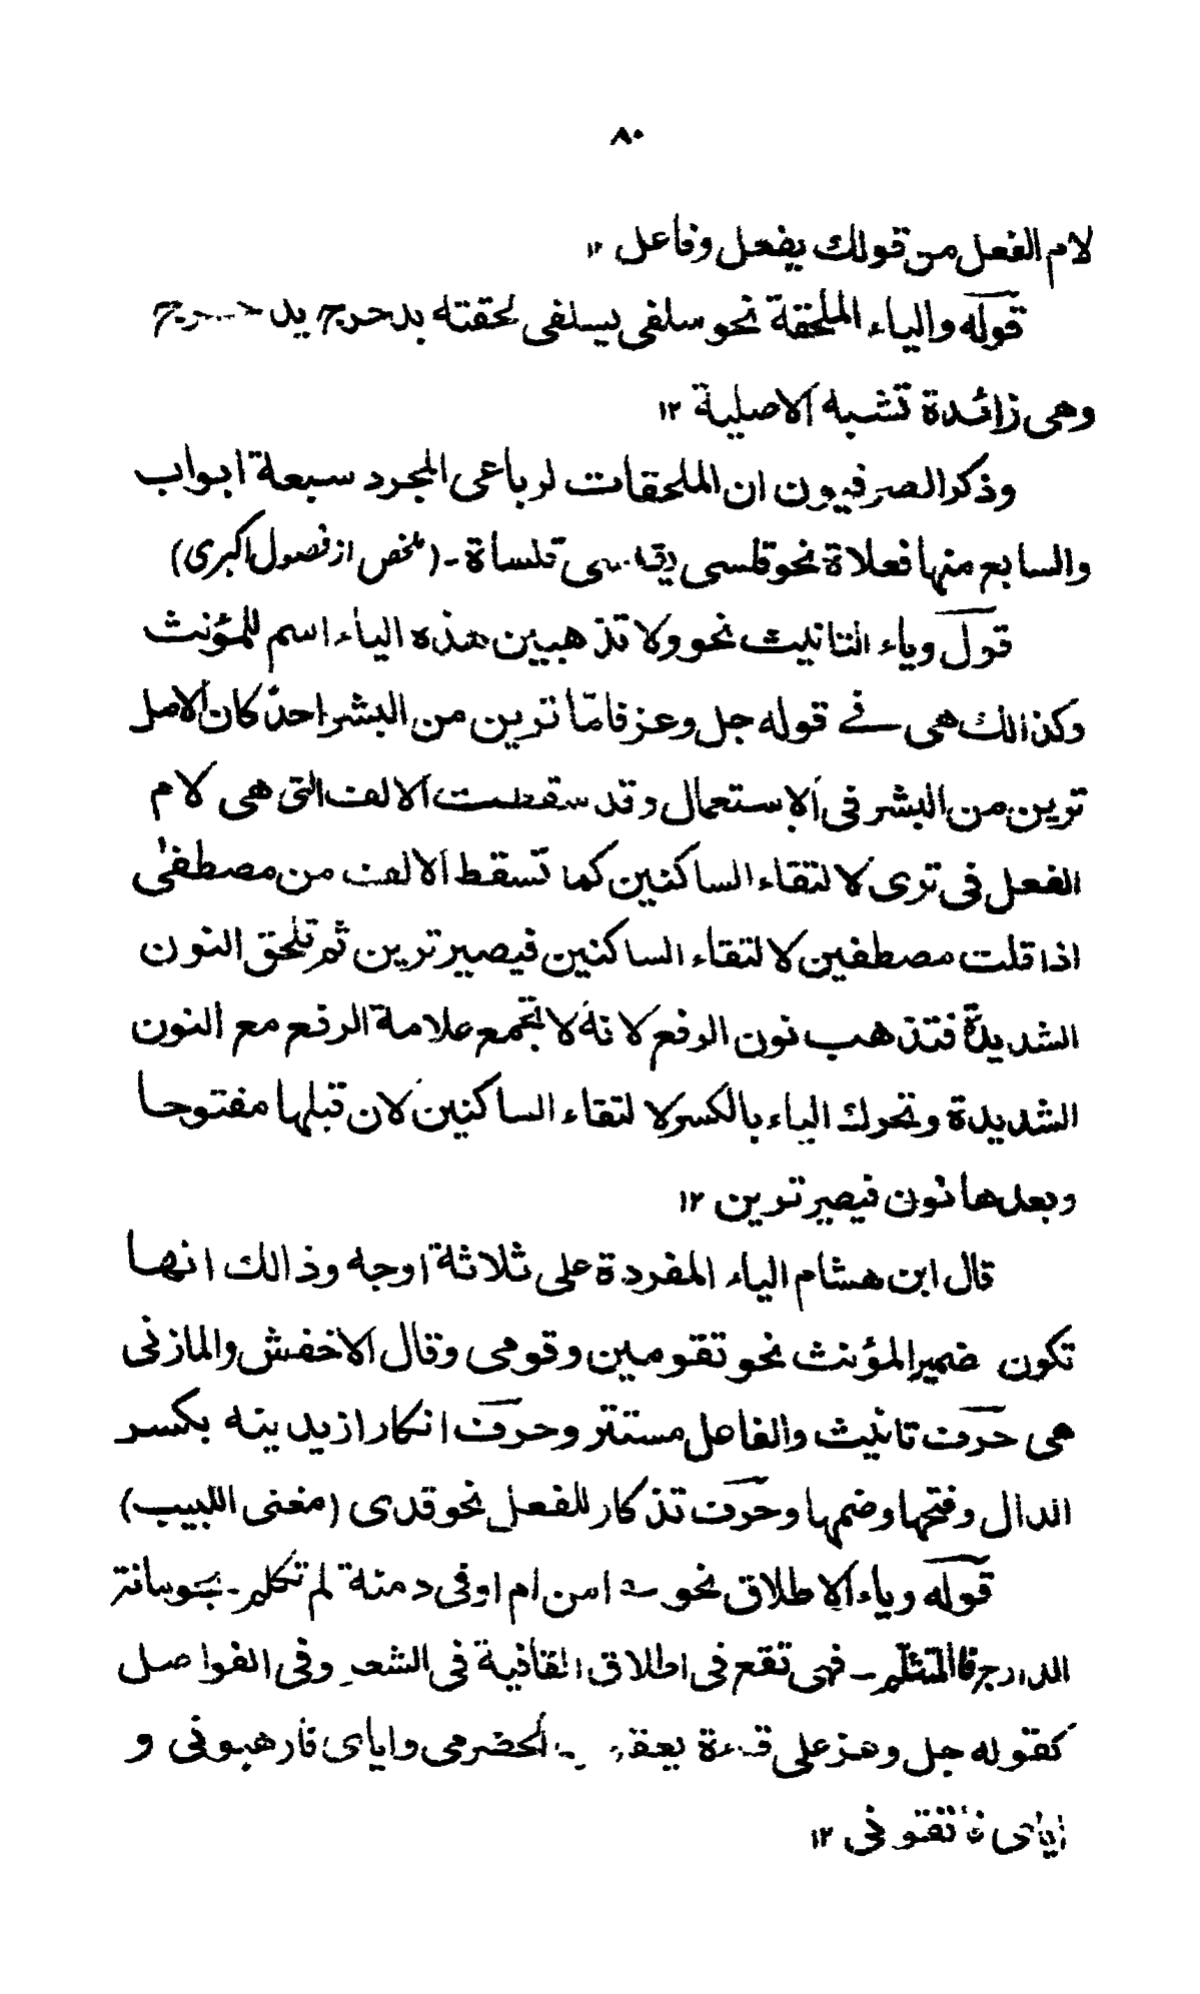 ٨٠
لام الفعل من قولك يفعل وفاعل ١٢
قوله والياء الملحقة نحو سلقى يسلقى لحقته بدحرج يدحرج
وهى زائدة تشبه الاصلية ١٢
وذكر الصرفيون ان الملحقات لرباعى المجرد سبعة ابواب
والسابع منها فعلاة نحو قلسى يقلسى قلساة - (ملخص از فصول اكبرى)
قول وياء التانيث نحو ولا تذهبين هذه الياء اسم للمؤنث
وكذالك هى فے قوله جل وعز فامّا ترين من البشر احدً كان الاصل
ترين من البشر فى الاستعمال وقد سقطت الالف التى هى لام
الفعل فى ترى لالتقاء الساكنين كما تسقط الالف من مصطفىٰ
اذا قلت مصطفين لالتقاء الساكنين فيصير ترين ثم تلحق النون
الشديدة فتذهب نون الرفع لانه لا تجمع علامة الرفع مع النون
الشديدة وتحرك الياء بالكسر لا لتقاء الساكنين لان قبلها مفتوحا
وبعدها نون فيصير ترين ١٢
قال ابن هشام الياء المفردة على ثلاثة اوجه وذالك انها
تكون ضمير المؤنث نحو تقومين وقومى وقال الاخفش والمازنى
هى حرف تانيث والفاعل مستتر وحرف انكار ازيد ينه بكسر
الدال وفتحها وضمها وحرف تذكار للفعل نحو قدى (مغنى اللبيب)
قوله وياء الاطلاق نحو ؎ امن ام اوفى دمنة لم تكلم -
فالمتثلم - فهى تقع فى اطلاق القافية فى الشعر وفى الفواصل
كقوله جل وعز على قراءة الحضرمى واياى فارهبونى و
اياى فاتقونى ١٢